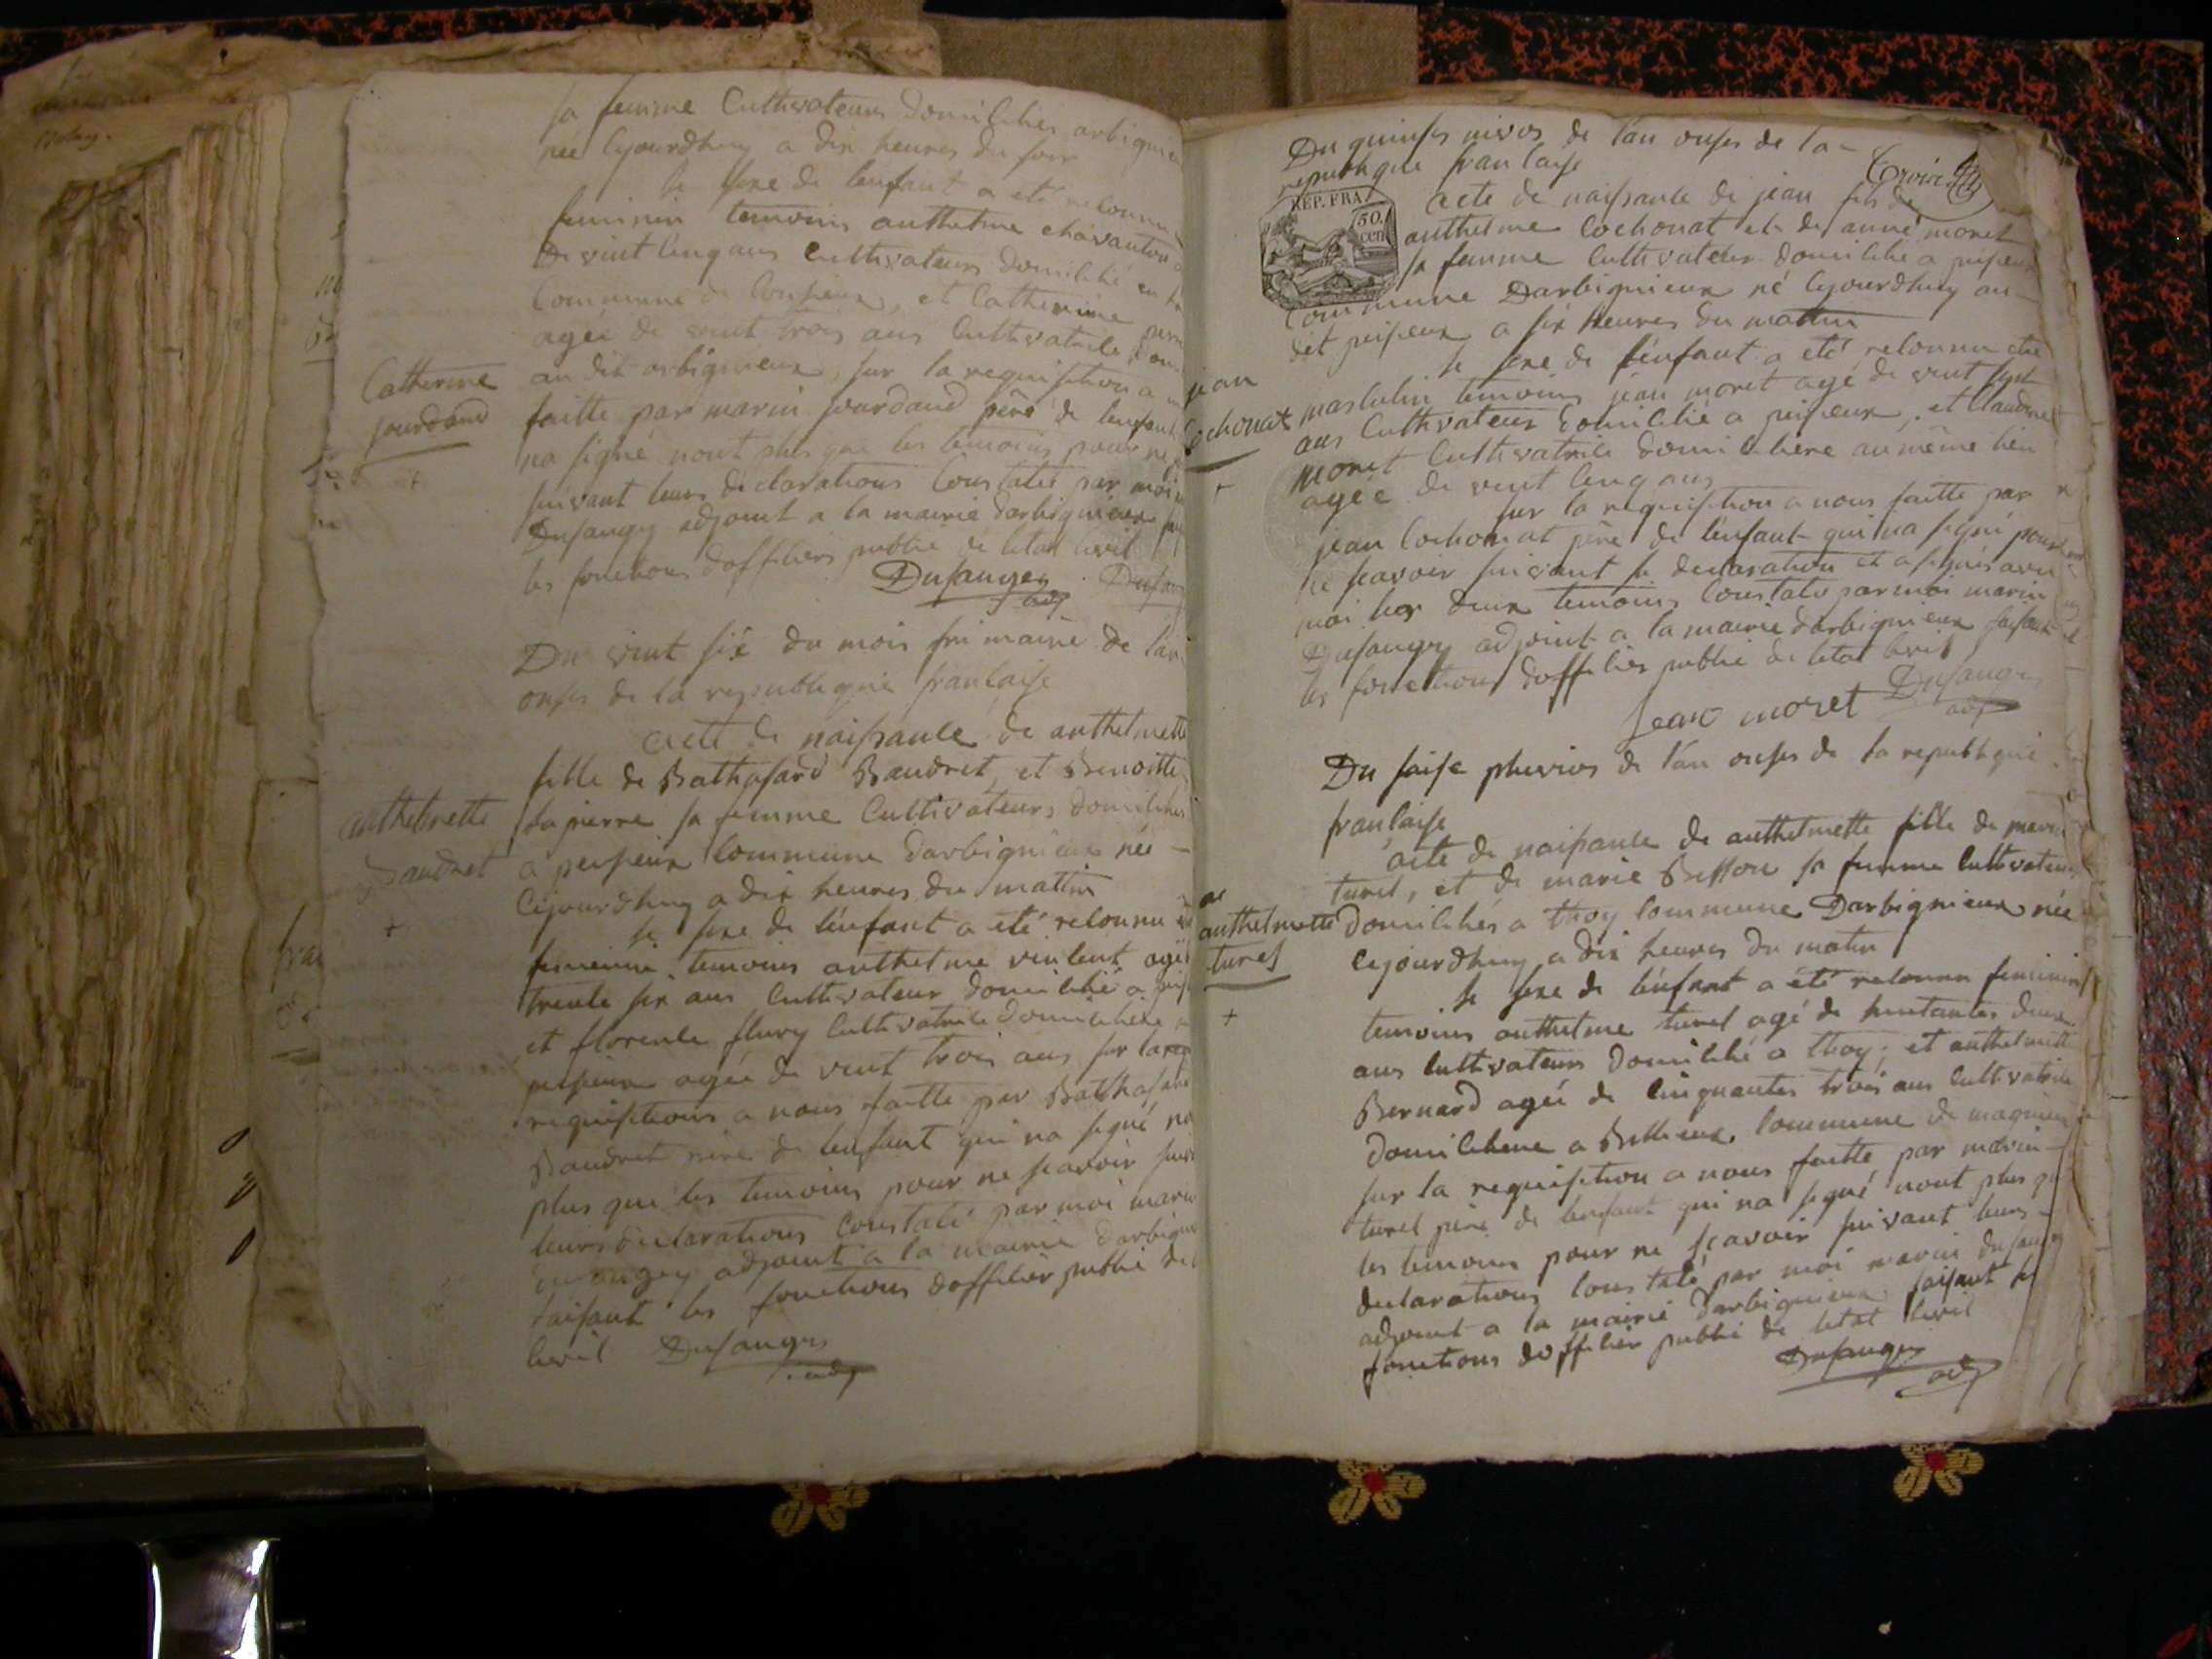 sa femme Cultivateurs domiciliés arbignieu
née Cejourdhuy a dix heures du soir
le sexe de lenfant a eté reconnu
feminin temoins anthelme chavanton
De vint cinq ans cultivateurs domicilié en la
Commune de Conzieux, et Catherine
agée de vint trois ans Cultivatrice
au dit arbignieux, sur la requisition a
faitte par marin jourdand père de lenfant
na signé nont plus que les temoins pour ne
suivant leurs declarations Constaté par moi
Dusaugey adjoint a la mairie darbignieux
les fonctions dofficiers public de letat civil
Dusaugey Dusaug
adj
Catherine
jourdand
+
Du vint six du mois frimaire de lan
onzes de la republique francaise
acte de naissance de anthelmette
fille de Bathasard Baudret et Benoitte
Lapierre sa femme Cultivateurs domiciliés
a peysieux Commune darbignieux née
Cejourdhuy a dix heures du mattin
le sexe de lenfant a eté reconnu
feminin temoins anthelme vincent agé
trente six ans Cultivateur domicilié a
et florence fleury Cultivatrice domiciliere
peysieux agée de vint trois ans sur la
requisitions a nous faitte par Balthasard
Baudret père de lenfant qui na signé no
plus que les temoins pour ne scavoir
leurs declarations Constaté par moi marin
Dusaugey adjoint a la mairie darbignieu
faisant les fonctions dofficier public de
civil Dusaugey
adj
anthelmette
Baudret
+
Du quinses nivos de lan onses de la
republique francaise
REP. FRA
50
cen
acte de naissance de jean fils de
anthelme Cochonat et de anne moret
sa femme Cultivateur domicilié a peysieux
Commune Darbignieux né Cejourdhuy au
dit peysieux a six heures du mattin
le sexe de lenfant a eté reconnu etre
masculin temoins jean moret agé de vint sept
ans Cultivateur domicilié a peisieux et Claudine
moret Cultivatrice domiciliere au même lieu
agée de vint cinq ans
sur la requisition a nous faitte par
jean Cochonat père de lenfant qui na signé pour
ne scavoir suivant sa declaration et a signés avec
moi les deux temoins Constaté par moi marin
Dusaugey adjoint a la mairie darbignieux faisant
les fonctions dofficier public de letat civil
jean moret Dusaugey
adj
jean
Cochonat
+
Du saise pluvios de lan onses de la republique
française
acte de naissance de anthelmette fille de marin
turel, et de marie Besson sa femme Cultivateurs
domiciliés a thoy Commune Darbignieux née
Cejourdhuy a dix heures du matin
le sexe de lenfant a eté reconnu feminin
temoins anthelme turel agé de
ans Cultivateurs domicilié a thoy, et anthelmette
Bernard agée de Cinquantes trois ans Cultivatrice
domiciliere a Commune de magnieu
sur la requisition a nous faitte par marin
turel père de lenfant qui na signé nont plus que
les temoins pour ne scavoir suivant leurs
declarations Constaté par moi marin Dusaugey
adjoint a la mairie Darbignieux faisant les
fonctions dofficier public de letat civil
Dusaugey
adj
anthelmette
turel
+